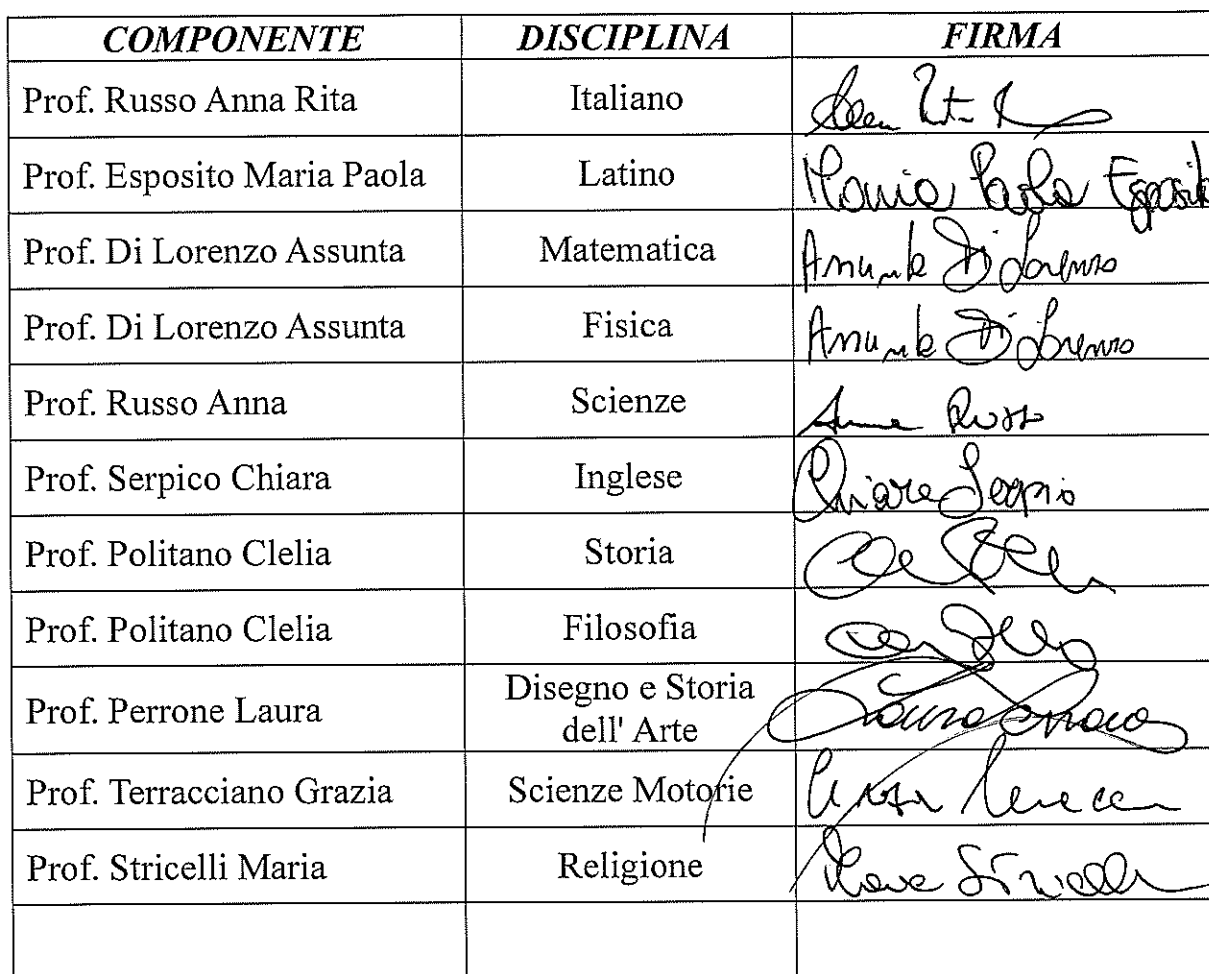 COMPONENTE DISCIPLINA FIRMA
Prof. Russo Anna Rita Italiano
Prof. Esposito Maria Paola Latino Maria Paola Esposito
Prof. Di Lorenzo Assunta Matematica Assunta Di Lorenzo
Prof. Di Lorenzo Assunta Fisica Assunta Di Lorenzo
Prof. Russo Anna Scienze Anna Russo
Prof. Serpico Chiara Inglese Chiara Serpico
Prof. Politano Clelia Storia
Prof. Politano Clelia Filosofia
Prof. Perrone Laura Disegno e Storia
dell' Arte
Prof. Terracciano Grazia Scienze Motorie
Prof. Stricelli Maria Religione